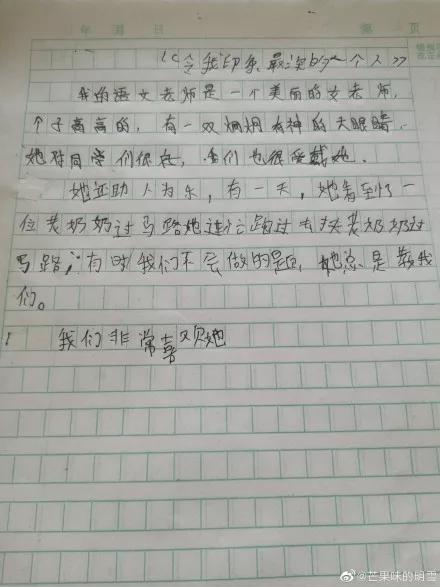 年 月 日 第 页
《令我印象最深的一个人》
我的语文老师是一个美丽的女老师,
个子高高的,有一双炯炯有神的大眼睛.
她对同学们很好,我们也很爱戴她.
她还助人为乐,有一天,她看到了一
位老奶奶过马路她连忙跑过去扶老奶奶过
马路,有时我们不会做的题,她总是教我
们。
我们非常喜欢她
@芒果味的明雪